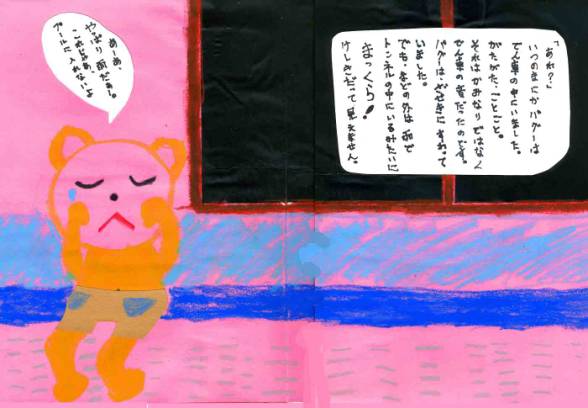 「あれ?」
いつのまにかパグーは
でん車の中にいました。
がたがた、ごとごと。
それはかみなりではなく
でん車の音だったのです。
パグーは、ざせきにすわって
いました。
でも、まどの外は雨で
トンネルの中にいるみたいに
まっくら!
けしきだって見えません。
あーあ、
やっぱり雨だぁー。
これじゃあ、
プールに入れないよ